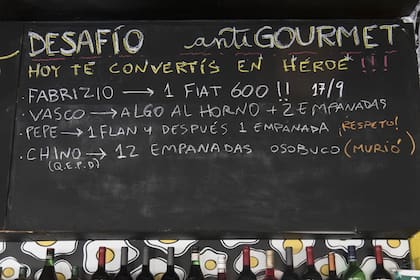 DESAFÍO antiGOURMET
HOY TE CONVERTÍS EN HÉROE !!!
· FABRIZIO → 1 FIAT 600 !! 17/9
· VASCO → ALGO AL HORNO + 2 EMPANADAS
· PEPE → 1 FLAN Y DESPUÉS 1 EMPANADA ¡RESPETO!
· CHINO → 12 EMPANADAS OSOBUCO (MURIÓ)
(Q.E.P.D)